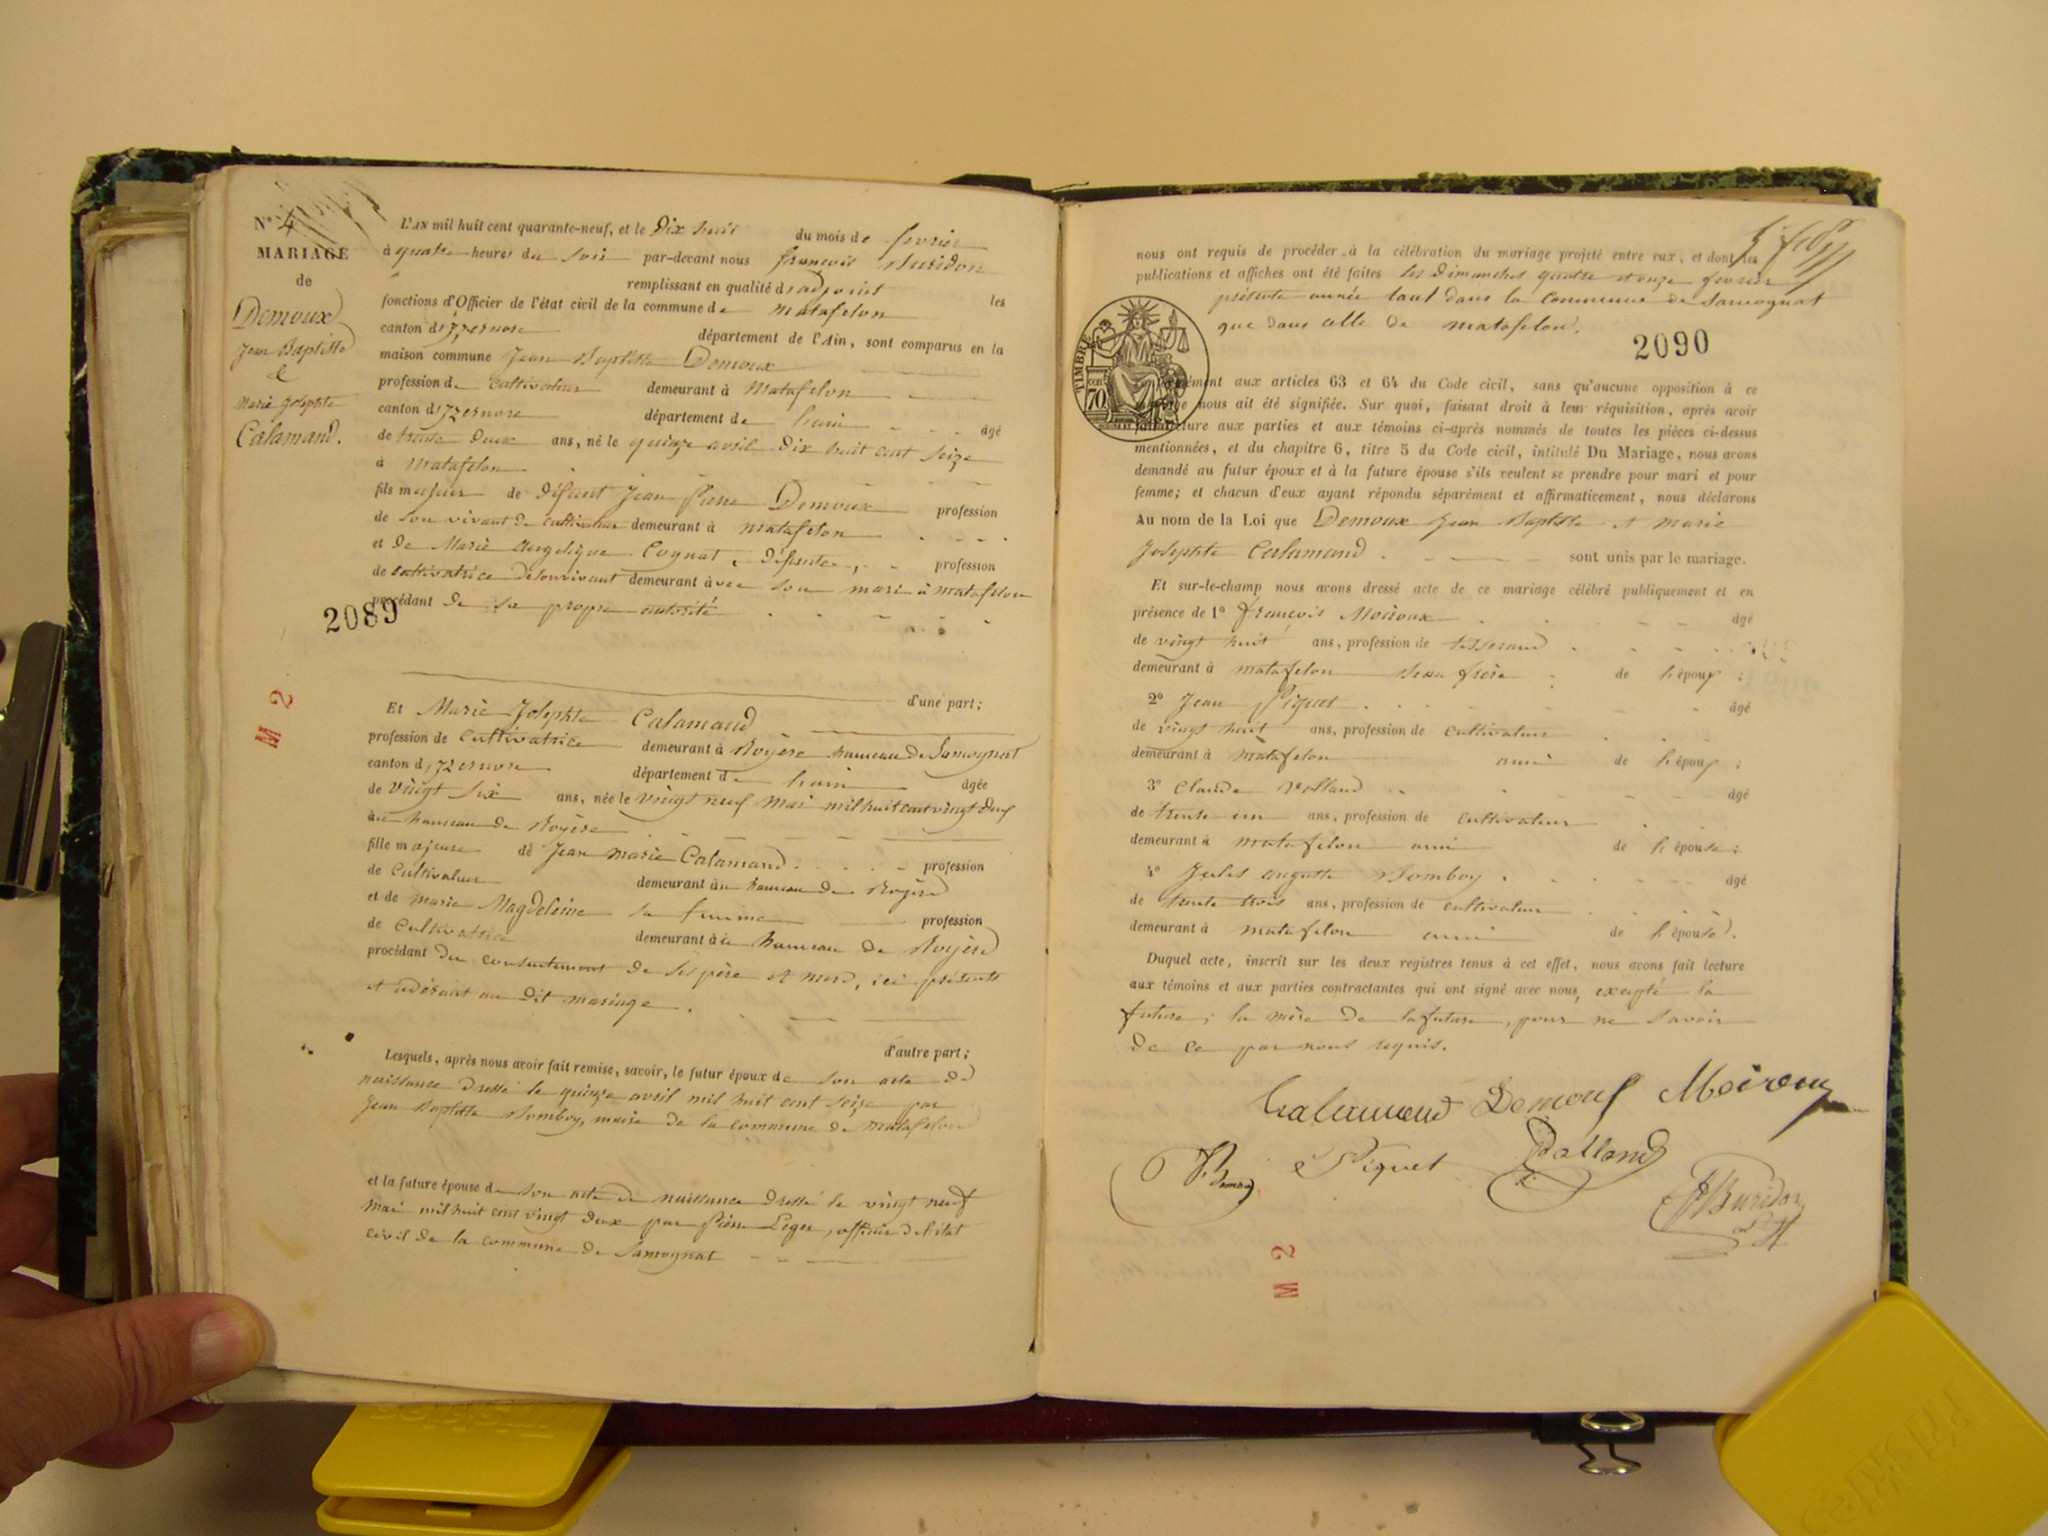 N° 4
MARIAGE
de
Demoux
Jean Baptiste
&
Marie Josephte
Calamand.
L'AN mil huit cent quarante-neuf, et le Dix huit du mois de fevrier
à quatre heures du soir par-devant nous françois Buridon
remplissant en qualité d'adjoint les
fonctions d'Officier de l'état civil de la commune de matafelon
canton d'yzernore département de l'Ain, sont comparus en la
maison commune Jean Baptiste Demoux
profession de cultivateur demeurant à Matafelon
canton d'yzernore département de lain âgé
de trente deux ans, né le quinze avril dix huit cent seize
à matafelon
fils majeur de défunt Jean Pierre Demoux profession
de son vivant de cultivateur demeurant à matafelon
et de Marie angelique Cognat, défunte, profession
de cultivatrice de son vivant demeurant avec son mari à matafelon
procédant de sa propre autorité
2089
d'une part;
M 2
Et Marie Josephte Calamand
profession de cultivatrice demeurant à Royère hameau de Samognat
canton d'yzernore département de lain âgée
de vingt six ans, née le vingt neuf mai mil huit cent vingt deux
au hameau de Royère
fille majeure de Jean marie Calamand profession
de cultivateur demeurant au hameau de Royère
et de marie Magdeleine sa femme profession
de cultivatrice demeurant au hameau de Royère
procédant du consentement de ses père et mere, ici présents
et adérant au dit mariage.
d'autre part;
Lesquels, après nous avoir fait remise, savoir, le futur époux de son acte de
naissance dressé le quinze avril mil huit cent seize par
Jean Baptiste Bomboy, maire de la commune de Matafelon
et la future épouse de son acte de naissance dressé le vingt neuf
mai mil huit cent vingt deux par Pierre Leger, officier de l'état
civil de la commune de Samognat
nous ont requis de procéder à la célébration du mariage projeté entre eux, et dont les
publications et affiches ont été faites les dimanches quatre et onze fevrier
présente année tant dans la commune de Samognat
que dans celle de matafelon.
2090
TIMBRE
70
aux articles 63 et 64 du Code civil, sans qu'aucune opposition à ce
nous ait été signifiée. Sur quoi, faisant droit à leur réquisition, après avoir
fait lecture aux parties et aux témoins ci-après nommés de toutes les pièces ci-dessus
mentionnées, et du chapitre 6, titre 5 du Code civil, intitulé Du Mariage, nous avons
demandé au futur époux et à la future épouse s'ils veulent se prendre pour mari et pour
femme; et chacun d'eux ayant répondu séparément et affirmativement, nous déclarons
Au nom de la Loi que Demoux Jean Baptiste et marie
Josephte Calamand sont unis par le mariage.
Et sur-le-champ nous avons dressé acte de ce mariage célébré publiquement et en
présence de 1° françois Moiroux âgé
de vingt huit ans, profession de tisserand
demeurant à matafelon Beau frère de l'époux;
2° Jean Piquet âgé
de vingt huit ans, profession de cultivateur
demeurant à matafelon ami de l'époux;
3° Claude Volland âgé
de trente un ans, profession de cultivateur
demeurant à matafelon ami de l'épouse;
4° Jules auguste Bomboy âgé
de trente trois ans, profession de cultivateur
demeurant à matafelon ami de l'épouse.
Duquel acte, inscrit sur les deux registres tenus à cet effet, nous avons fait lecture
aux témoins et aux parties contractantes qui ont signé avec nous, excepté la
future, la mère de la future, pour ne savoir
de ce par nous requis.
Calamand Demoux Moiroux
Piquet Volland
Buridon
M 2